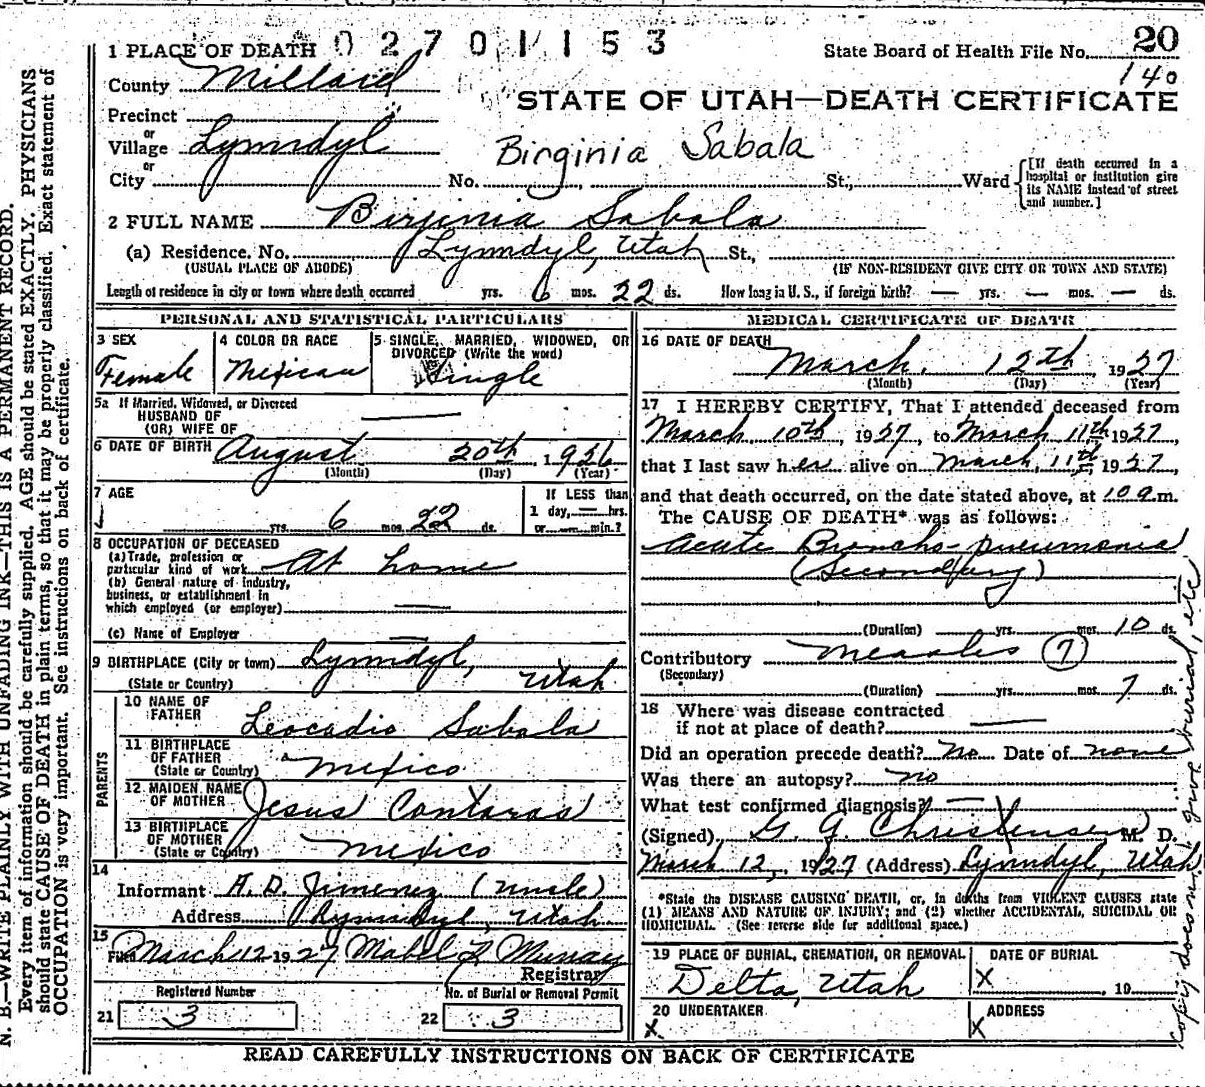 1 PLACE OF DEATH 0 2 7 0 1 1 5 3 State Board of Health File No. 20
County Millard 140
STATE OF UTAH—DEATH CERTIFICATE
Precinct
or
Village Lynndyl Birginia Sabala
or
City No. St., Ward [If death occurred in a hospital or institution give its NAME instead of street and number.]
2 FULL NAME Birginia Sabala
(a) Residence. No. Lynndyl, Utah St.,
(USUAL PLACE OF ABODE) (IF NON-RESIDENT GIVE CITY OR TOWN AND STATE)
Length of residence in city or town where death occurred yrs. 6 mos. 22 ds. How long in U. S., if foreign birth? — yrs. — mos. — ds.
PERSONAL AND STATISTICAL PARTICULARS
3 SEX
Female
4 COLOR OR RACE
Mexican
5 SINGLE, MARRIED, WIDOWED, OR
DIVORCED (Write the word)
Single
5a If Married, Widowed, or Divorced
HUSBAND OF
(OR) WIFE OF
6 DATE OF BIRTH August 20th, 1926
(Month) (Day) (Year)
7 AGE
yrs. 6 mos. 22 ds.
If LESS than
1 day, — hrs.
or — min.?
8 OCCUPATION OF DECEASED
(a) Trade, profession or
particular kind of work At home
(b) General nature of industry,
business, or establishment in
which employed (or employer)
(c) Name of Employer
9 BIRTHPLACE (City or town) Lynndyl,
(State or Country) Utah
PARENTS
10 NAME OF
FATHER Leocadio Sabala
11 BIRTHPLACE
OF FATHER
(State or Country) Mexico
12 MAIDEN NAME
OF MOTHER Jesus Contaras
13 BIRTHPLACE
OF MOTHER
(State or Country) Mexico
14
Informant A. D. Jimenez (Uncle)
Address Lynndyl, Utah
15
Filed March 12 1927 Mabel F. Murray
Registrar
Registered Number
21 3
No. of Burial or Removal Permit
22 3
MEDICAL CERTIFICATE OF DEATH
16 DATE OF DEATH
March 12th 1927
(Month) (Day) (Year)
17 I HEREBY CERTIFY, That I attended deceased from
March 10th, 1927, to March 11th 1927,
that I last saw her alive on March 11th 1927,
and that death occurred, on the date stated above, at 10 a.m.
The CAUSE OF DEATH* was as follows:
Acute Broncho-pneumonia
(Secondary)
(Duration) yrs. mos. 10 ds.
Contributory Measles (7)
(Secondary)
(Duration) yrs. mos. 7 ds.
18 Where was disease contracted
if not at place of death?
Did an operation precede death? No Date of none
Was there an autopsy? no
What test confirmed diagnosis? —
(Signed) G. G. Christensen M. D.
March 12, 1927 (Address) Lynndyl, Utah
*State the DISEASE CAUSING DEATH, or, in deaths from VIOLENT CAUSES state
(1) MEANS AND NATURE OF INJURY; and (2) whether ACCIDENTAL, SUICIDAL OR
HOMICIDAL. (See reverse side for additional space.)
19 PLACE OF BURIAL, CREMATION, OR REMOVAL
Delta, Utah
DATE OF BURIAL
X , 19
20 UNDERTAKER
X
ADDRESS
X
READ CAREFULLY INSTRUCTIONS ON BACK OF CERTIFICATE
N. B.—WRITE PLAINLY WITH UNFADING INK—THIS IS A PERMANENT RECORD.
Every item of information should be carefully supplied. AGE should be stated EXACTLY. PHYSICIANS
should state CAUSE OF DEATH in plain terms, so that it may be properly classified. Exact statement of
OCCUPATION is very important. See instructions on back of certificate.
copy doesn't give burial, etc